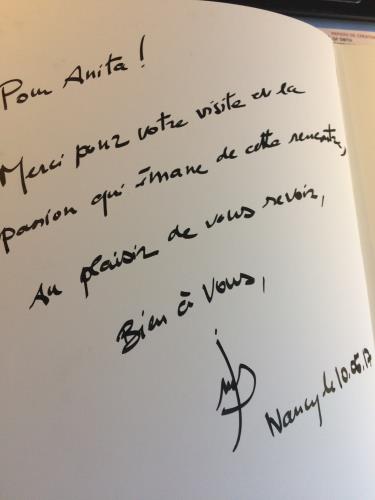 Pour Anita !
Merci pour votre visite et la
passion qui émane de cette rencontre,
Au plaisir de vous revoir,
Bien à Vous,
Nancy le 10.05.17